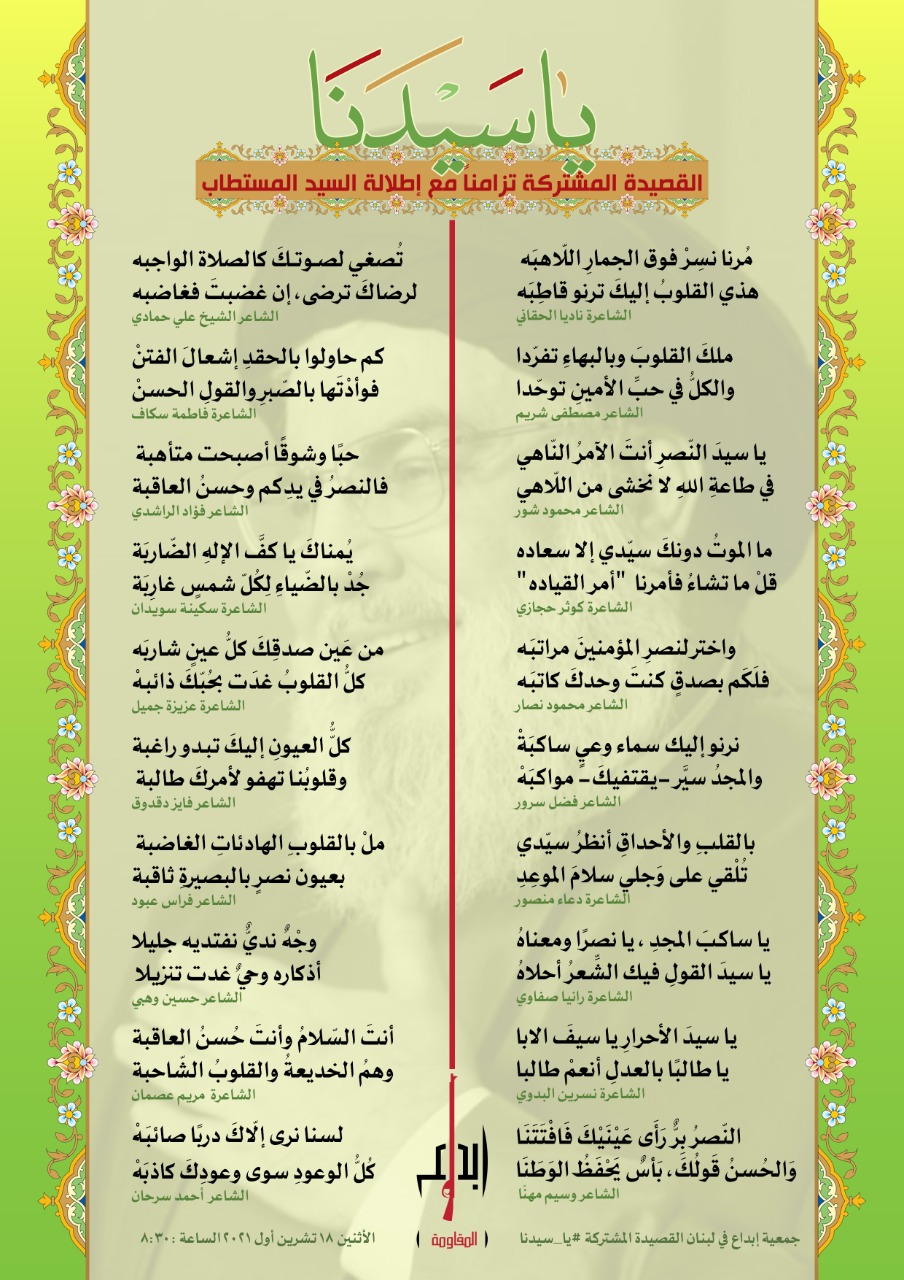 يا سَيِّدَنَا
القصيدة المشتركة تزامناً مع إطلالة السيد المستطاب
مُرنا نسِرْ فوق الجمارِ اللّاهبَه
هذي القلوبُ إليكَ ترنو قاطِبَه
الشاعرة ناديا الحقاني
تُصغي لصوتكَ كالصلاة الواجبه
لرضاكَ ترضى، إن غضبتَ فغاضبه
الشاعر الشيخ علي حمادي
ملكَ القلوبَ وبالبهاءِ تفرّدا
والكلُّ في حبِّ الأمينِ توحّدا
الشاعر مصطفى شريم
كم حاولوا بالحقدِ إشعالَ الفتنْ
فوأدْتَها بالصّبرِ والقولِ الحسنْ
الشاعرة فاطمة سكاف
يا سيدَ النّصرِ أنتَ الآمرُ النّاهي
في طاعةِ اللهِ لا نخشى من اللّاهي
الشاعر محمود شور
حبًا وشوقًا أصبحت متأهبة
فالنصرُ في يدِكم وحسنُ العاقبة
الشاعر فؤاد الراشدي
ما الموتُ دونكَ سيّدي إلا سعاده
قلْ ما تشاءُ فأمرنا "أمر القياده"
الشاعرة كوثر حجازي
يُمناكَ يا كفَّ الإلهِ الضّاربَة
جُدْ بالضّياءِ لِكُلّ شمسٍ غارِبَة
الشاعرة سكينة سويدان
واختر لنصرِ المؤمنينَ مراتبَه
فلَكَم بصدقٍ كنتَ وحدكَ كاتبَه
الشاعر محمود نصار
من عَين صدقِكَ كلُّ عينٍ شاربَه
كلُّ القلوبُ غدَت بحُبّكَ ذائبهْ
الشاعرة عزيزة جميل
نرنو إليك سماء وعيٍ ساكبَةْ
والمجدُ سيَّر -يقتفيكَ- مواكبَهْ
الشاعر فضل سرور
كلُّ العيونِ إليكَ تبدو راغبة
وقلوبُنا تهفو لأمركَ طالبة
الشاعر فايز دقدوق
بالقلبِ والأحداقِ أنظرُ سيّدي
تُلْقي على وَجلي سلامَ الموعِدِ
الشاعرة دعاء منصور
ملْ بالقلوبِ الهادئاتِ الغاضبة
بعيون نصرٍ بالبصيرةِ ثاقبة
الشاعر فراس عبود
يا ساكبَ المجدِ ، يا نصرًا ومعناهُ
يا سيدَ القولِ فيك الشِّعرُ أحلاهُ
الشاعرة رانيا صفاوي
وجْهٌ نديٌّ نفتديه جليلا
أذكاره وحيٌ غدت تنزيلا
الشاعر حسين وهبي
يا سيدَ الأحرارِ يا سيفَ الابا
يا طالبًا بالعدلِ أنعمْ طالبا
الشاعرة نسرين البدوي
أنتَ السّلامُ وأنتَ حُسنُ العاقبة
وهمُ الخديعةُ والقلوبُ الشّاحبة
الشاعرة مريم عصمان
النّصرُ بِرٌّ رَأَى عَيْنَيْكَ فَافْتَتَنَا
وَالحُسنُ قَولُكَ، بَأسٌ يَحْفَظُ الوَطَنَا
الشاعر وسيم مهنّا
لسنا نرى إلّاكَ دربًا صائبَهْ
كُلُّ الوعودِ سوى وعودِكَ كاذبَهْ
الشاعر أحمد سرحان
إبداع
المقاومة
جمعية إبداع في لبنان القصيدة المشتركة #يا_سيدنا
الأثنين ١٨ تشرين أول ٢٠٢١ الساعة :٨:٣٠